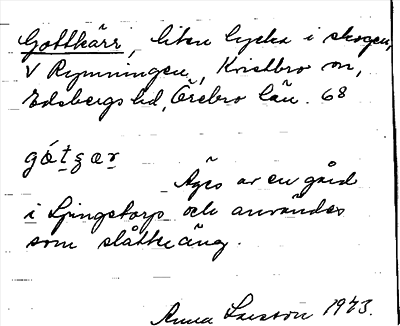 Gottkärr, liten lycka i skogen,
V Rymningen, Kvistbro sn,
Edsbergs hd, Örebro län. 68
Äges av en gård
i Ljungstorp och användes
som slåtteräng.
Anna Larsson 1973.